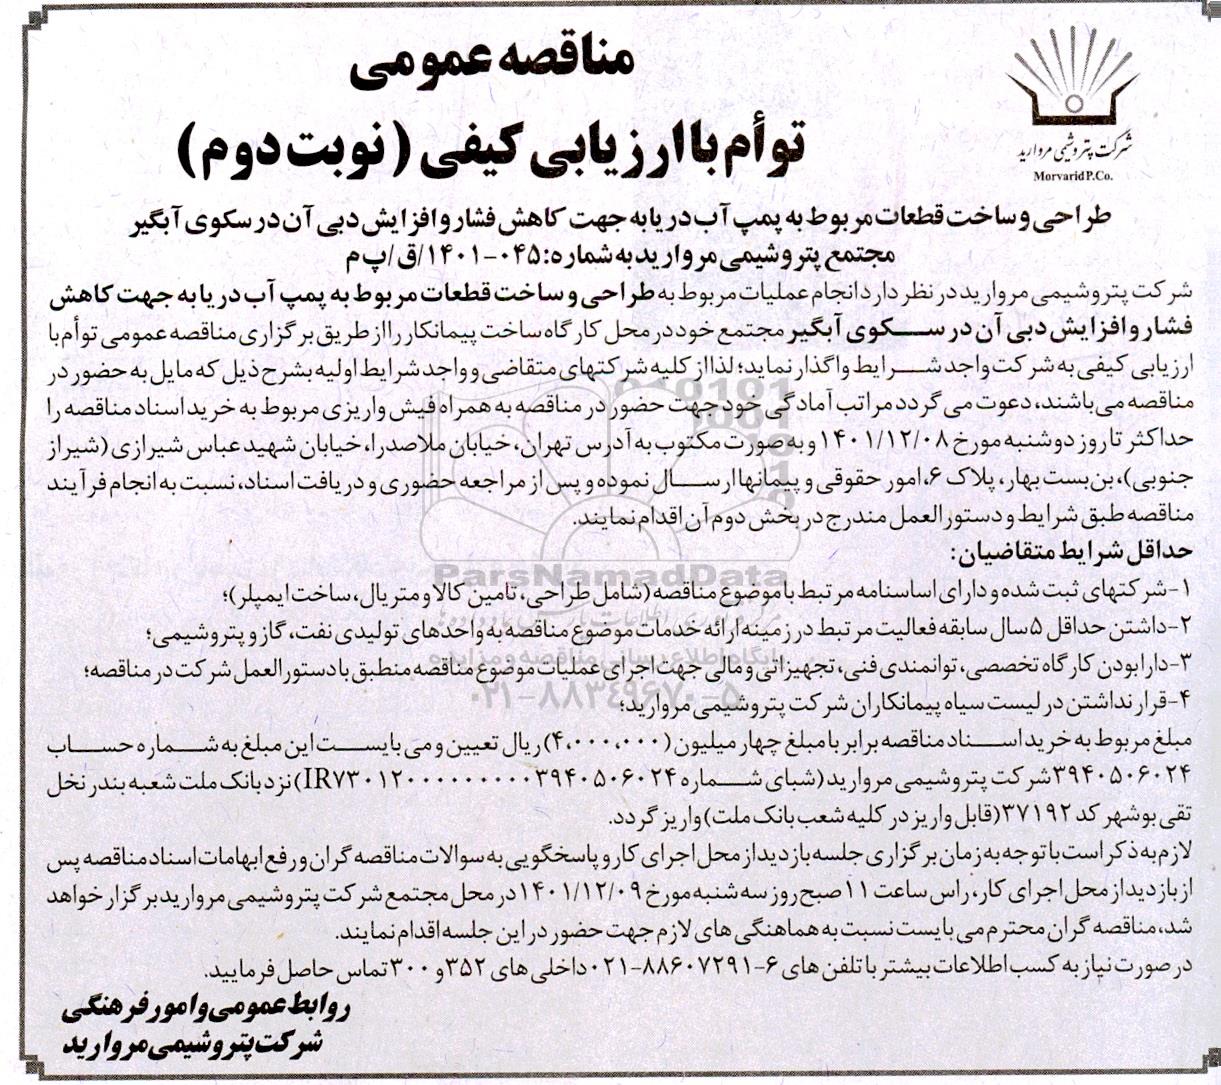 مناقصه عمومی
توأم با ارزیابی کیفی (نوبت دوم)
شرکت پتروشیمی مروارید
Morvarid P.Co.
طراحی و ساخت قطعات مربوط به پمپ آب دریا به جهت کاهش فشار و افزایش دبی آن در سکوی آبگیر
مجتمع پتروشیمی مروارید به شماره: ۰۴۵-۱۴۰۱/ق/پ م
شرکت پتروشیمی مروارید در نظر دارد انجام عملیات مربوط به طراحی و ساخت قطعات مربوط به پمپ آب دریا به جهت کاهش
فشار و افزایش دبی آن در سکوی آبگیر مجتمع خود در محل کارگاه ساخت پیمانکار را از طریق برگزاری مناقصه عمومی توأم با
ارزیابی کیفی به شرکت واجد شرایط واگذار نماید؛ لذا از کلیه شرکتهای متقاضی و واجد شرایط اولیه بشرح ذیل که مایل به حضور در
مناقصه می‌باشند، دعوت می گردد مراتب آمادگی خود جهت حضور در مناقصه به همراه فیش واریزی مربوط به خرید اسناد مناقصه را
حداکثر تا روز دوشنبه مورخ ۱۴۰۱/۱۲/۰۸ و به صورت مکتوب به آدرس تهران، خیابان ملاصدرا، خیابان شهید عباس شیرازی (شیراز
جنوبی)، بن‌بست بهار، پلاک ۶، امور حقوقی و پیمانها ارسال نموده و پس از مراجعه حضوری و دریافت اسناد، نسبت به انجام فرآیند
مناقصه طبق شرایط و دستورالعمل مندرج در بخش دوم آن اقدام نمایند.
حداقل شرایط متقاضیان:
۱-شرکتهای ثبت شده و دارای اساسنامه مرتبط با موضوع مناقصه (شامل طراحی، تامین کالا و متریال، ساخت ایمپلر)؛
۲-داشتن حداقل ۵ سال سابقه فعالیت مرتبط در زمینه ارائه خدمات موضوع مناقصه به واحدهای تولیدی نفت، گاز و پتروشیمی؛
۳-دارا بودن کارگاه تخصصی، توانمندی فنی، تجهیزاتی و مالی جهت اجرای عملیات موضوع مناقصه منطبق با دستورالعمل شرکت در مناقصه؛
۴-قرار نداشتن در لیست سیاه پیمانکاران شرکت پتروشیمی مروارید؛
مبلغ مربوط به خرید اسناد مناقصه برابر با مبلغ چهار میلیون (۴،۰۰۰،۰۰۰) ریال تعیین و می بایست این مبلغ به شماره حساب
۳۹۴۰۵۰۶۰۲۴ شرکت پتروشیمی مروارید (شبای شماره IR۷۳۰۱۲۰۰۰۰۰۰۰۰۰۰۳۹۴۰۵۰۶۰۲۴) نزد بانک ملت شعبه بندر نخل
تقی بوشهر کد ۳۷۱۹۲ (قابل واریز در کلیه شعب بانک ملت) واریز گردد.
لازم به ذکر است با توجه به زمان برگزاری جلسه بازدید از محل اجرای کار و پاسخگویی به سوالات مناقصه گران و رفع ابهامات اسناد مناقصه پس
از بازدید از محل اجرای کار، راس ساعت ۱۱ صبح روز سه شنبه مورخ ۱۴۰۱/۱۲/۰۹ در محل مجتمع شرکت پتروشیمی مروارید برگزار خواهد
شد، مناقصه گران محترم می بایست نسبت به هماهنگی های لازم جهت حضور در این جلسه اقدام نمایند.
در صورت نیاز به کسب اطلاعات بیشتر با تلفن های ۶-۰۲۱-۸۸۶۰۷۲۹۱ داخلی های ۳۵۲ و ۳۰۰ تماس حاصل فرمایید.
روابط عمومی و امور فرهنگی
شرکت پتروشیمی مروارید
ParsNamadData
پایگاه اطلاع رسانی مناقصه و مزایده
۰۲۱-۸۸۳۴۹۶۷۰-۵